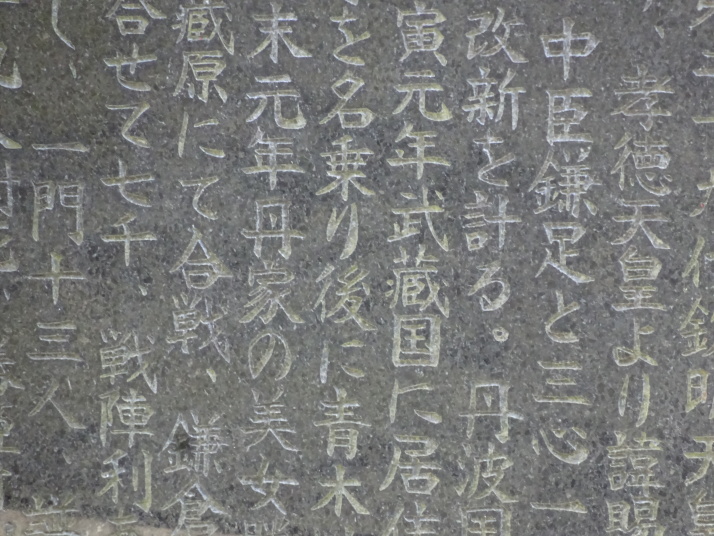 九代欽明天皇
孝徳天皇より諱賜
中臣鎌足と三心一
改新を計る。丹波国
寅元年武蔵国に居住
を名乗り後に青木
末元年丹家の美女
蔵原にて合戦、鎌倉
合せて七千、戦陣利
し、一門十三人、